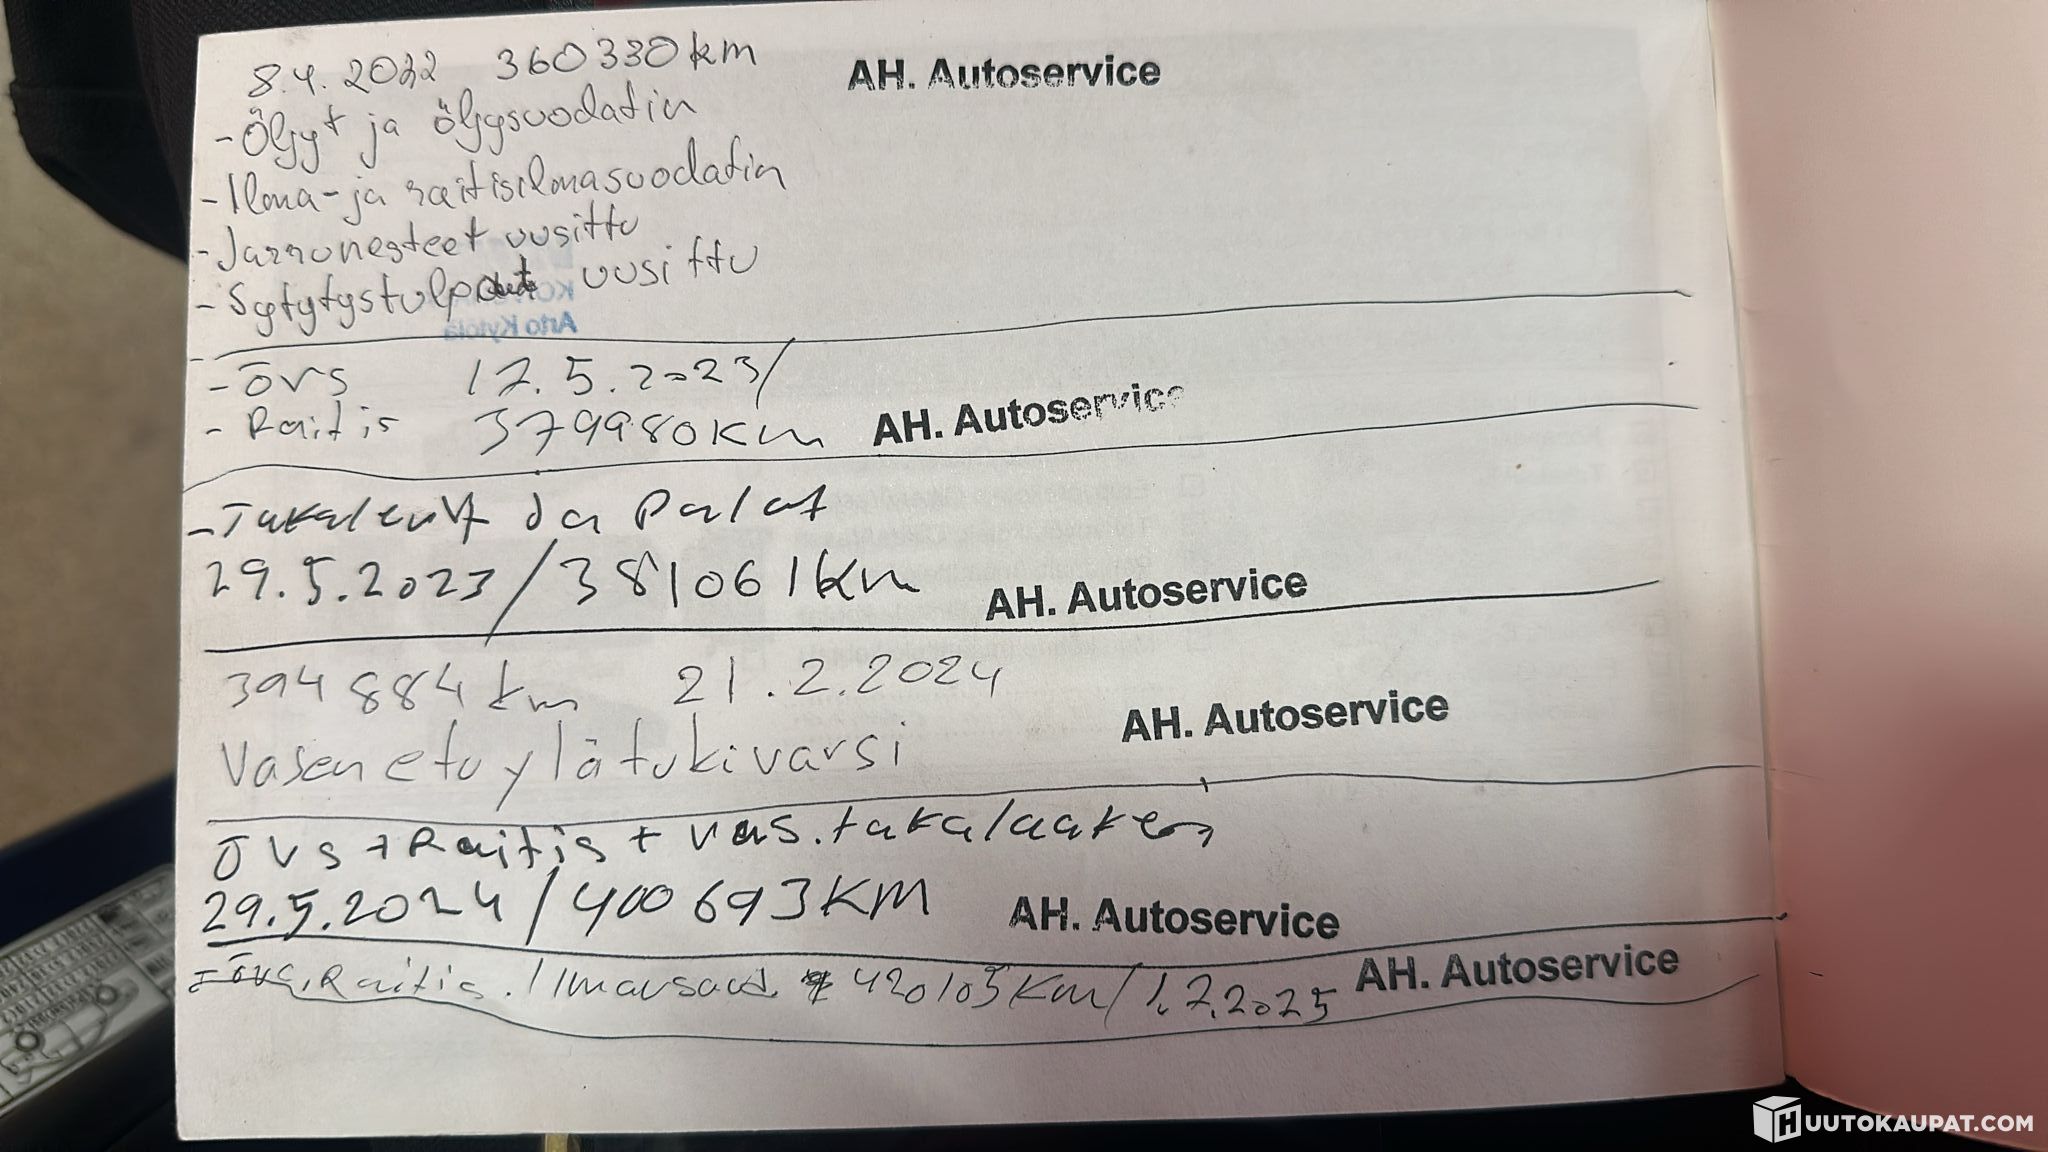 8.4.2022 360330km AH. Autoservice
- Öljyt ja öljysuodatin
- Ilma- ja raitisilmasuodatin
- Jarrunesteet uusittu
- Sytytystulpat uusittu
Arto Kytölä
- Övs 17.5.2023/
- Raitis 379980km AH. Autoservice
- Takalevyt ja Palat
29.5.2023/381061km AH. Autoservice
394884km 21.2.2024
Vasen etu ylätukivarsi AH. Autoservice
Övs + Raitis + vas. takalaakeri
29.5.2024/400693KM AH. Autoservice
- Övs, Raitis. Ilmansuod. 420105km/1.7.2025 AH. Autoservice
HUUTOKAUPAT.COM